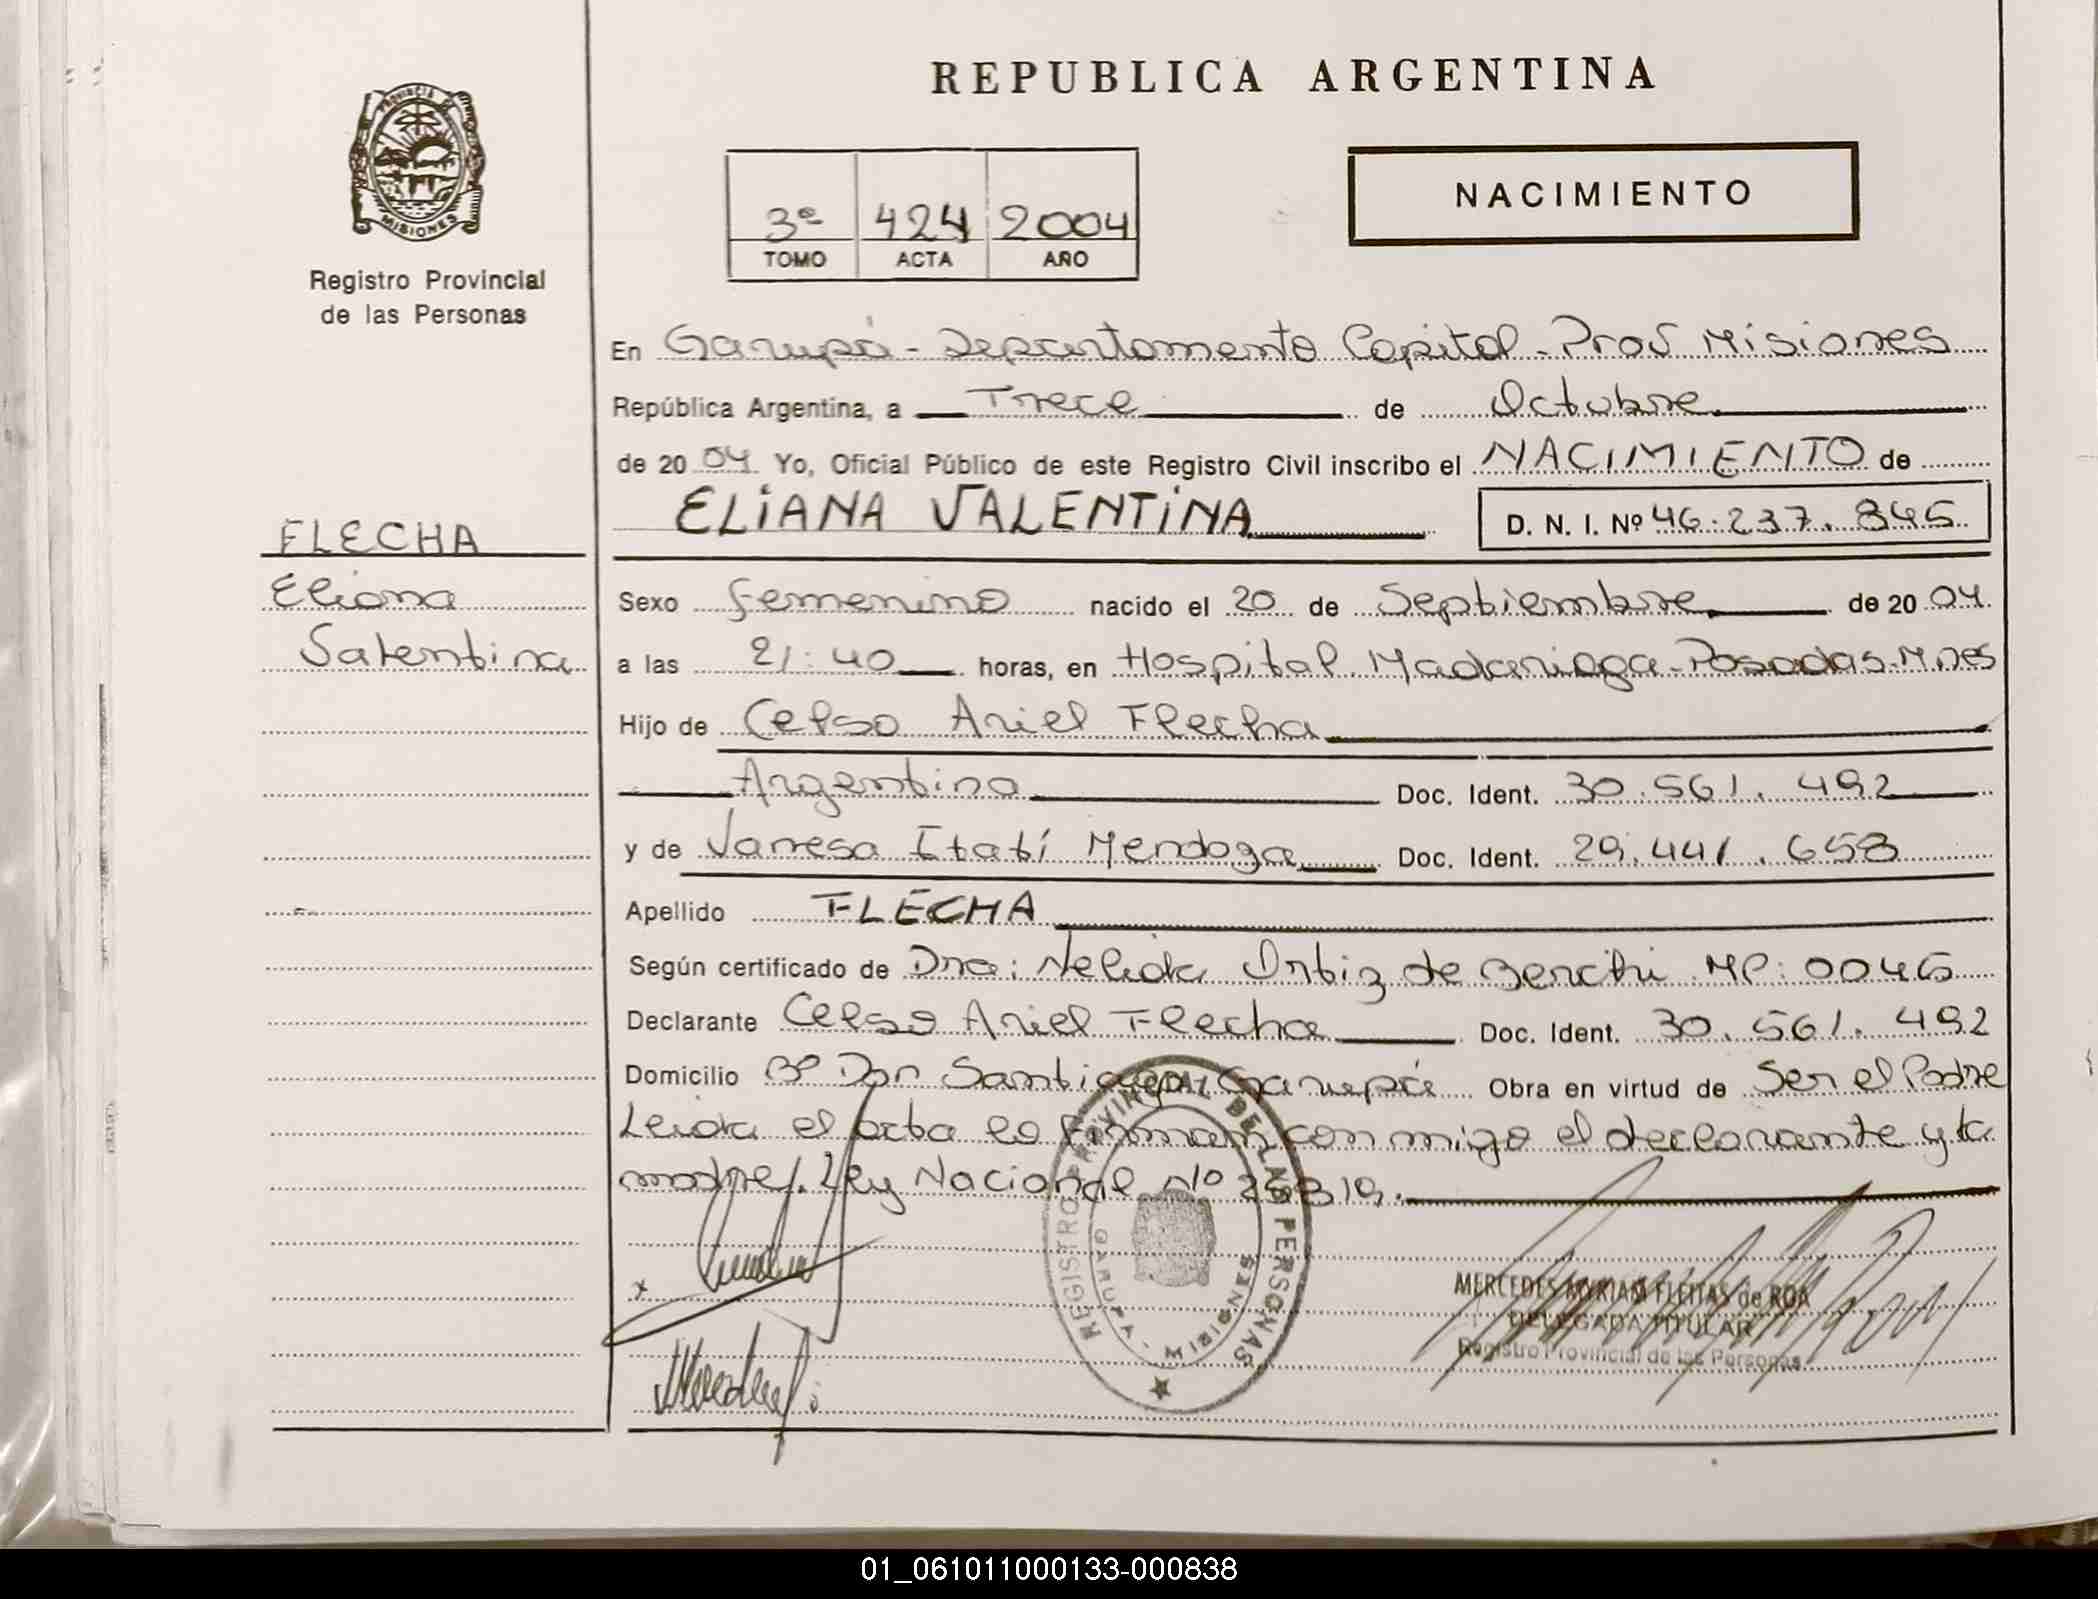 REPUBLICA ARGENTINA
PROVINCIA DE MISIONES
Registro Provincial
de las Personas
3º 424 2004
TOMO ACTA AÑO
NACIMIENTO
En Garupá - Departamento Capital - Prov Misiones
República Argentina, a Trece de Octubre
de 2004 Yo, Oficial Público de este Registro Civil inscribo el NACIMIENTO de
ELIANA VALENTINA D. N. I. Nº 46.237.845
FLECHA
Eliana
Valentina
Sexo femenino nacido el 20 de Septiembre de 2004
a las 21:40 horas, en Hospital Madariaga - Posadas - Mnes
Hijo de Celso Ariel Flecha
Argentino Doc. Ident. 30.561.492
y de Vanesa Itatí Mendoza Doc. Ident. 29.441.658
Apellido FLECHA
Según certificado de Dra: Nelida Ortiz de MP: 0046
Declarante Celso Ariel Flecha Doc. Ident. 30.561.492
Domicilio Bº Don Santiago, Garupá Obra en virtud de Ser el Padre
Leida el acta la firman con migo el declarante y la
madre/. Ley Nacional nº 25819.
REGISTRO PROVINCIAL DE LAS PERSONAS
GARUPA - MISIONES
MERCEDES MYRIAM FLEITAS de ROA
DELEGADA TITULAR
Registro Provincial de las Personas
01_061011000133-000838